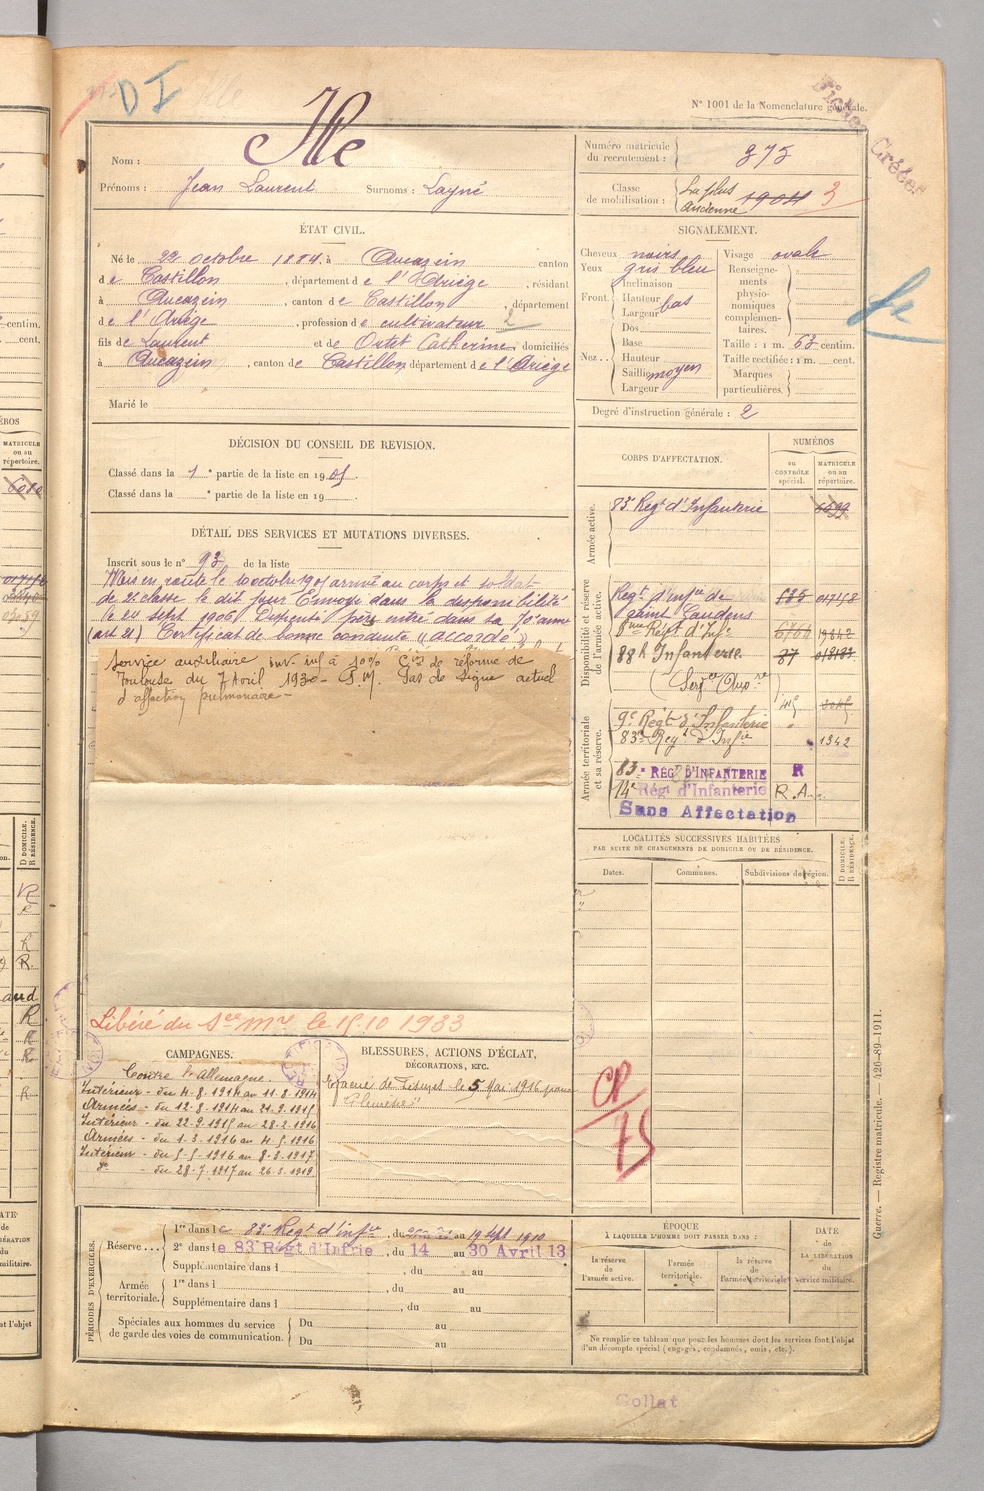 DI
N° 1001 de la Nomenclature générale.
Nom : Ille
Prénoms : Jean Laurent Surnoms : Layné
Numéro matricule du recrutement : 375
Classe de mobilisation : La plus ancienne 1904 3
ÉTAT CIVIL.
Né le 22 octobre 1884 à Aucazein, canton
de Castillon, département de l'Ariège, résidant
à Aucazein, canton de Castillon, département
de l'Ariège, profession de cultivateur
fils de Laurent et de Ortet Catherine, domiciliés
à Aucazein, canton de Castillon département de l'Ariège
Marié le
SIGNALEMENT.
Cheveux noirs
Yeux gris bleu
Front. Inclinaison
Hauteur bas
Largeur
Nez... Dos
Base
Hauteur
Saillie moyen
Largeur
Visage ovale
Renseignements physionomiques complémentaires.
Taille : 1 m. 63 centim.
Taille rectifiée : 1 m. cent.
Marques particulières.
Degré d'instruction générale : 2
DÉCISION DU CONSEIL DE REVISION.
Classé dans la 1e partie de la liste en 1905.
Classé dans la e partie de la liste en 19
DÉTAIL DES SERVICES ET MUTATIONS DIVERSES.
Inscrit sous le n° 93 de la liste
Mis en route le 10 octobre 1905 arrivé au corps et soldat
de 2e classe le dit jour Envoyé dans la disponibilité
le 20 sept 1906 Dispensé
(art 21) Certificat de bonne conduite "accordé"
Service auxiliaire inv. inf à 10% Con de réforme de
Toulouse du 7 Avril 1930 - P.M. Pas de signe actuel
d'affection pulmonaire -
Libéré du Sce Mre le 15.10 1933
CORPS D'AFFECTATION.
NUMÉROS
au CONTRÔLE spécial.
MATRICULE ou au répertoire.
Armée active.
83e Regt d'Infanterie
Disponibilité et réserve de l'armée active.
Regt d'infie de Saint Gaudens
Regt d'Infie 6764
88 R Infanterie 87
Armée territoriale et sa réserve.
9e Regt d'Infanterie
83e Regt d'Infie 1342
83e RÉGT D'INFANTERIE R
14e Régt d'Infanterie R.A.
Sans Affectation
LOCALITÉS SUCCESSIVES HABITÉES
PAR SUITE DE CHANGEMENTS DE DOMICILE OU DE RÉSIDENCE.
Dates. Communes. Subdivisions de région.
D DOMICILE. R RÉSIDENCE.
CAMPAGNES.
Contre l'Allemagne.
Intérieur - du 4-8-1914 au 11-8-1914
Armées - du 12-8-1914 au 21-9-1915
Intérieur - du 22-9-1915 au 28-2-1916
Armées - du 1-3-1916 au 4-5-1916
Intérieur - du 5-5-1916 au 8-3-1917
BLESSURES, ACTIONS D'ÉCLAT,
DÉCORATIONS, ETC.
Evacué de Fismes le 5 Mai 1916 pour
"Pleurésie"
CP/75
PÉRIODES D'EXERCICES.
Réserve... 1re dans le 83e Regt d'infie, du au 19 sept 1910
2e dans le 83e Régt d'Infrie, du 14 au 30 Avril 13
Supplémentaire dans l , du au
Armée territoriale. 1re dans l , du au
Supplémentaire dans l , du au
Spéciales aux hommes du service de garde des voies de communication. Du au
Du au
ÉPOQUE
À LAQUELLE L'HOMME DOIT PASSER DANS :
la réserve de l'armée active.
l'armée territoriale.
la réserve de l'armée territoriale
DATE de LA LIBÉRATION du service militaire.
Ne remplir ce tableau que pour les hommes dont les services font l'objet
d'un décompte spécial (engagés, condamnés, omis, etc.).
Guerre. — Registre matricule. — 426-89-1911.
Collat